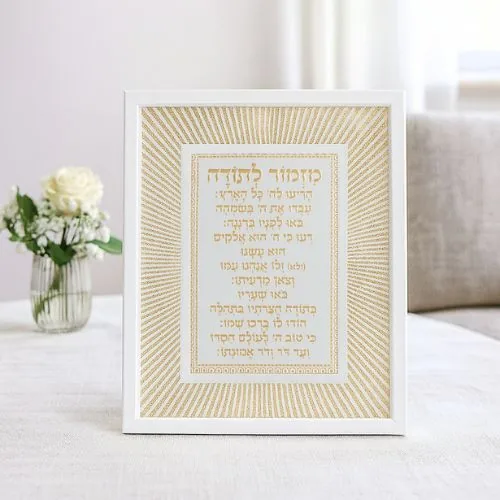 מִזְמוֹר לְתוֹדָה
הָרִיעוּ לַה' כָּל הָאָרֶץ:
עִבְדוּ אֶת ה' בְּשִׂמְחָה
בֹּאוּ לְפָנָיו בִּרְנָנָה:
דְּעוּ כִּי ה' הוּא אֱלֹקִים
הוּא עָשָׂנוּ
(ולא) וְלוֹ אֲנַחְנוּ עַמּוֹ
וְצֹאן מַרְעִיתוֹ:
בֹּאוּ שְׁעָרָיו
בְּתוֹדָה חֲצֵרֹתָיו בִּתְהִלָּה
הוֹדוּ לוֹ בָּרְכוּ שְׁמוֹ:
כִּי טוֹב ה' לְעוֹלָם חַסְדּוֹ
וְעַד דֹּר וָדֹר אֱמוּנָתוֹ: